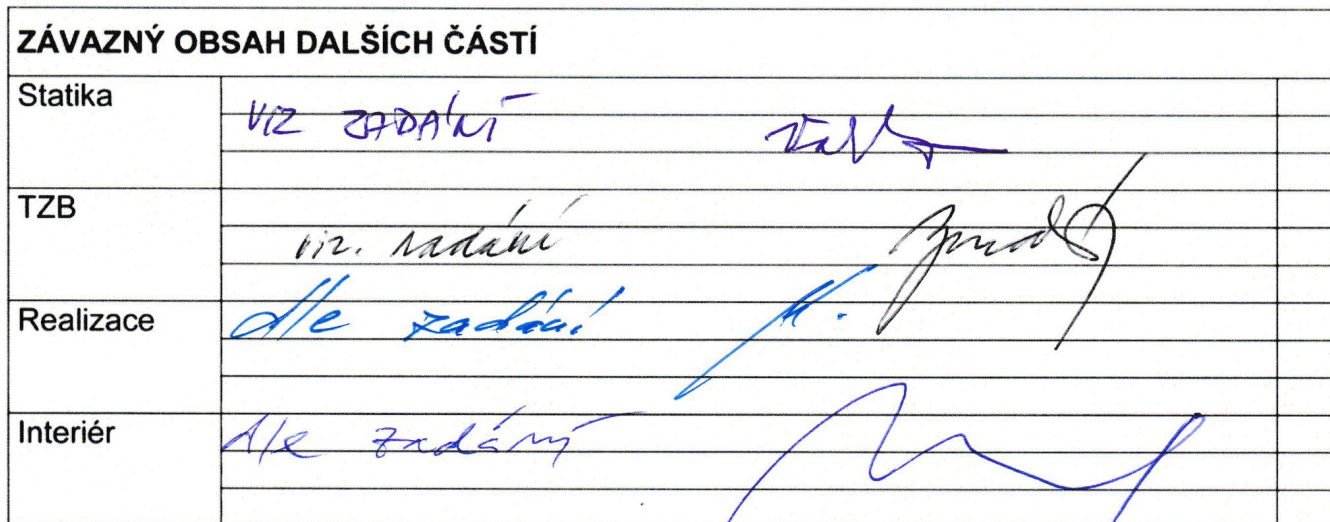 ZÁVAZNÝ OBSAH DALŠÍCH ČÁSTÍ
Statika VIZ ZADÁNÍ
TZB viz. zadání
Realizace dle zadání
Interiér dle zadání